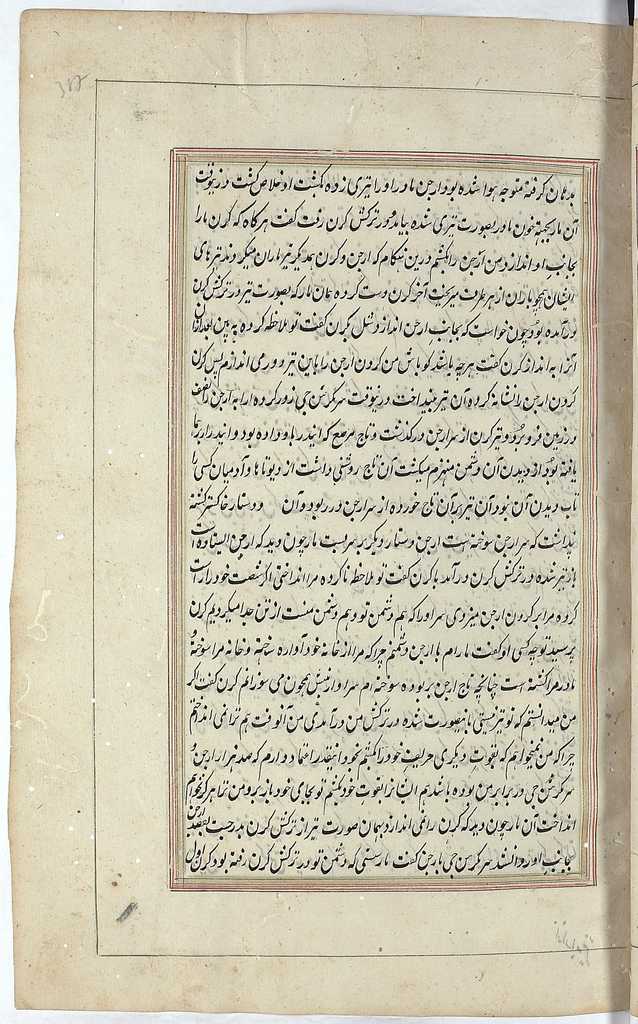 بدهان گرفته متوجه هوا شده بود ارجن مادر او را تیری زده بکشت او خلاص گشت درینوقت
آن مار بجهة خون مادر بصورت تیری شده بیامد و در ترکش کرن رفت گفت هرگاه که کرن ما را
بجانب او اندازد من ارجن را بکشم درین هنگام که ارجن و کرن همدیگر تیرباران میکردند تیرهای
ایشان همچو باران از هر طرف میریخت آخر کرن دست کرده همان مار که بصورت تیر در ترکش کرن
در آمده بود چون خواست که بجانب ارجن اندازد شل بکرن گفت تو ملاحظه کرده به بین بعد ازان
آنرا به انداز کرن گفت هرچه باشد کو باش من گردن ارجن را باین تیر دور می اندازم پس کرن
گردن ارجن را نشانه کرده آن تیر بینداخت درینوقت سرکرشن جی زور کرده ارابه ارجن را نصف
در زمین فرو برد و تیر کرن از سر ارجن در گذشت و تاج مرصع که اندر باو داده بود و اندر از برهما
یافته بود از دیدن آن دشمن منهزم میگشت آن تاج روشنی داشت از دیوتاها و آدمیان کسی را
تاب دیدن آن نبود آن تیر بر آن تاج خورده از سر ارجن در ربود و آن دستار خاکستر گشته
پنداشت که سر ارجن سوخته است ارجن دستار دیگر بر سر بست مار چون دید که ارجن ایستاده است
باز تیر شده در ترکش کرن در آمد با کرن گفت تو ملاحظه ناکرده مرا انداختی اگر شصت خود راراست
کرده مرا بر گردن ارجن میزدی سر او را که هم دشمن تو و هم دشمن منست از تن جدا میکردم کرن
پرسید تو چه کسی او گفت مارم با ارجن دشمنم چرا که مرا از خانه خود آواره ساخته و خانه مرا سوخته و
مادر مرا کشته است چنانچه تاج ارجن بر بوده سوخته ام سر او از نیش همچون می سوزانم کرن گفت اگر
من میدانستم که تو تیر نیستی بامصورت شده در ترکش من در آمدی من آنوقت هم ترا نمی انداختم
چرا که من نمیخواهم که بقوت دیگری حریف خود را بکشم نحو اینقدر اعتماد دارم که صد هزار ارجن و
سرکرشن جی در برابر من بوده باشند هم ایشانرا بقوت خود بکشم تو بجای خود باز برو من ترا هرگز نخواهم
انداخت آن مار چون دید که کرن را نمی اندازد بهمان صورت تیر از ترکش کرن بدر جست بقصد ارجن
بجانب او روانشد سرکرشن جی بارجن گفت مار ستی که دشمن تو در ترکش کرن رفته بود کرن اول